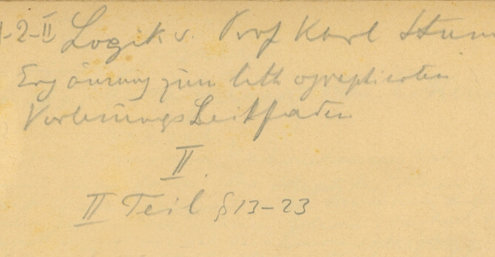 -2-II Logik v. Prof Karl Stum
Ergänzung zum lithographierten
Vorlesungs Leitfaden
II
II Teil § 13-23